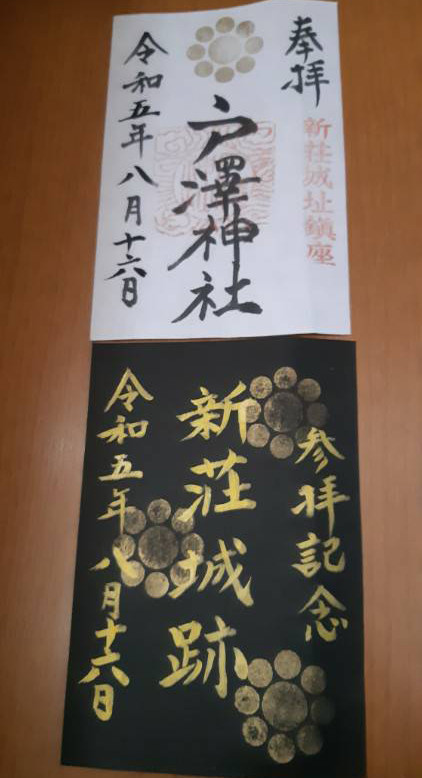 奉拝
新荘城址鎮座
戸澤神社
令和五年八月十六日
参拝記念
新荘城跡
令和五年八月十六日